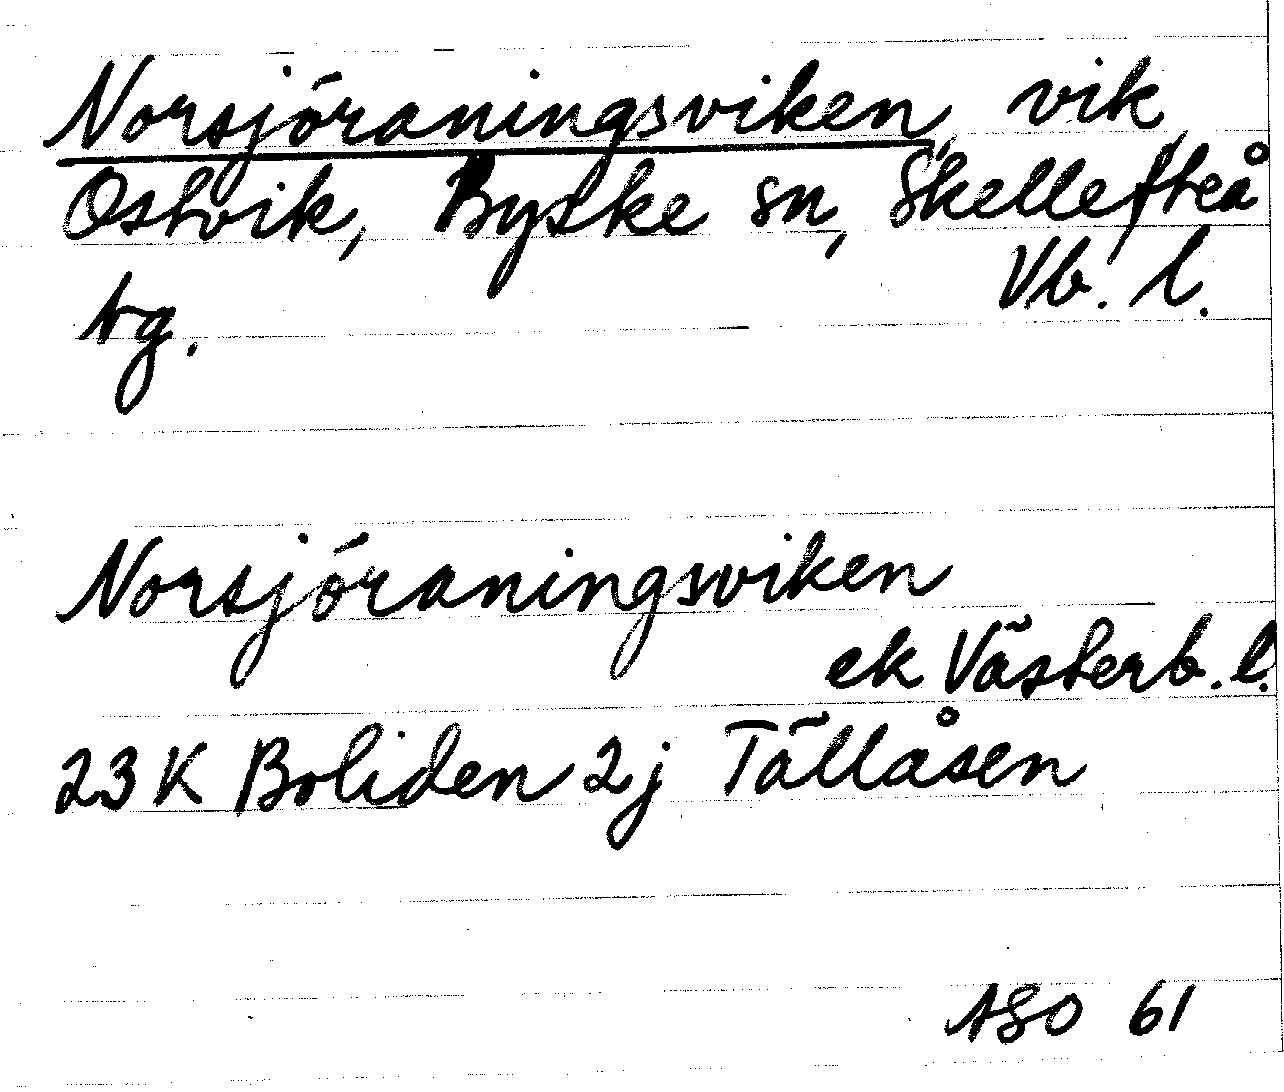 Norsjöraningsviken, vik,
Ostvik, Byske sn, Skellefteå
tg. Vb. l.
Norsjöraningsviken
ek Västerb. l.
23 K Boliden 2j Tällåsen
ASO 61